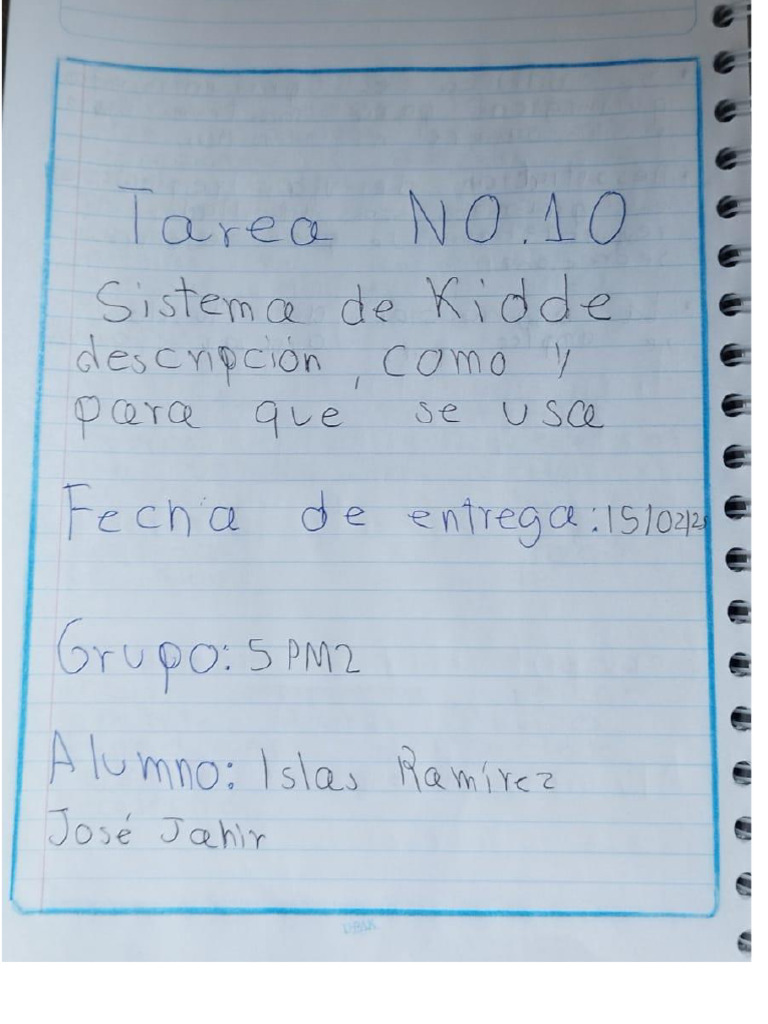 Tarea NO.10
Sistema de Kidde
descripción, como y
para que se usa
Fecha de entrega: 15/02/25
Grupo: 5PM2
Alumno: Islas Ramírez
José Jahir